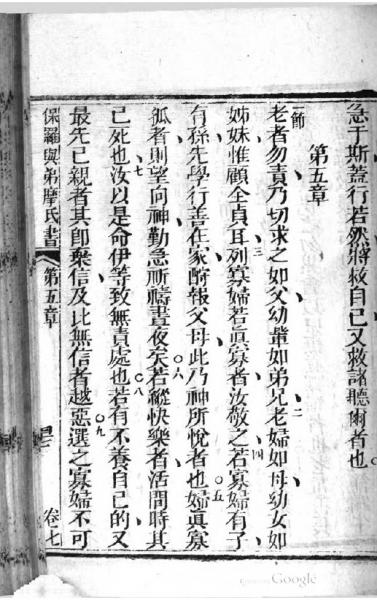 急于斯蓋行若然將救自已又救諸聽爾者也
第五章
一節
老者勿責乃切求之如父幼輩如弟兄老婦如母幼女如
二
姊妹惟顧全貞耳列寡婦若眞寡者汝敬之若寡婦有子
三 四
有孫先學行善在家酧報父母此乃神所悅者也婦眞寡
五
孤者則望向神勤急祈禱晝夜矣若縱快樂者活間時其
六
已死也汝以是命伊等致無責處也若有不養自己的又
七 八
最先已親者其卽棄信及比無信者越惡選之寡婦不可
九
保羅與弟摩氏書 第五章 卷七
Google